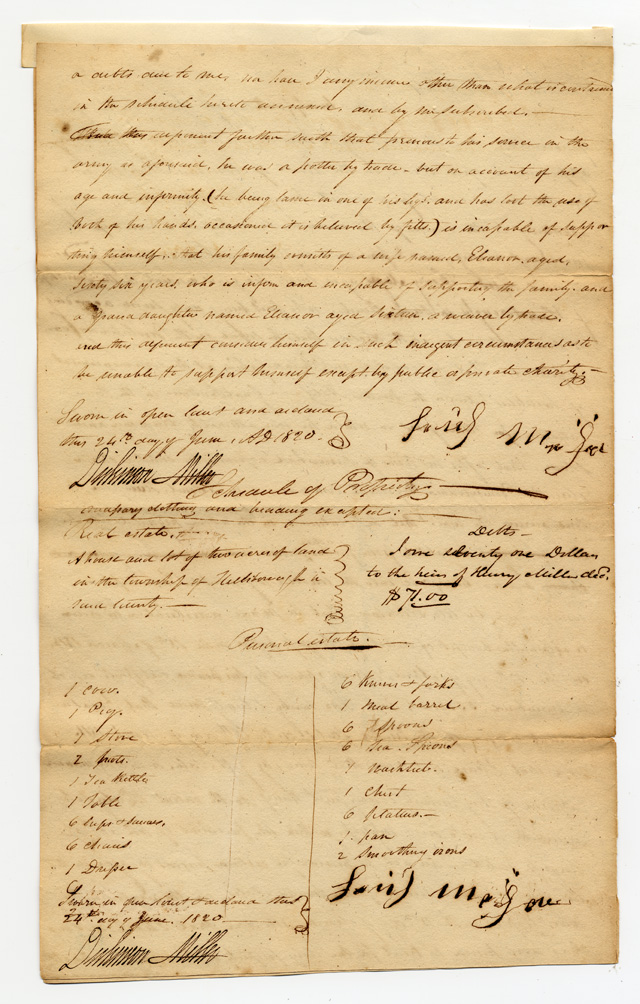 or debts due to me, nor have I any income other than what is contained
in the schedule hereto annexed, and by me subscribed. —
this deponent further saith that previous to his service in the
army as aforesaid, he was a potter by trade. but on account of his
age and infirmity. (he being lame in one of his legs. and has lost the use of
both of his hands. occasioned it is believed by fitts.) is incapable of suppor
ting himself, that his family consists of a wife named, Eleanor, aged,
sixty six years, who is infirm and incapable of supporting the family. and
a grand daughter named Eleanor aged sixteen, a weaver by trade.
and this deponent considers himself in such indigent circumstances as to
be unable to support himself except by public or private charity. —
Sworn in open Court and declared
this 24th day of June, AD 1820.
Dickinson Miller
Schedule of Property —
necessary clothing and beading excepted:
Real estate.
A house and lot of two acres of land
in the township of Hillsborough in
said County. —
Debts —
I owe seventy one Dollars
to the heirs of Henry Miller decd.
$71.00
Personal estate. —
1 cow.
1 Pig.
1 Stove
2 pots.
1 Tea Kettle
1 Table
6 cups & saucers.
6 chairs
1 Dresser
6 Knives & forks
1 meal barrel
6 Spoons
6 Tea-Spoons
1 washtub.
1 Chest
6 plates. —
1 pan
2 smoothing irons
Sworn in open Court & declared this
24th day of June. 1820 —
Dickinson Miller